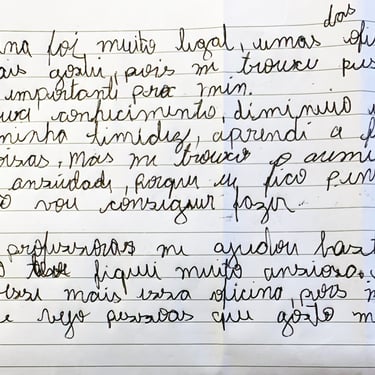 das
ina foi muito legal, umas ofi
ais gostei, pois me trouxe pes
importanti pra min.
ova conhecimento, diminuiu
minha timidez, aprendi a f
oisas, mas me trouxe o aumi
ansiedade, porque eu fico pen
ão vou consiguir fazer.
professoras me ajudou bast
fiquei muito ansiosa.
esse mais essa oficina, pois
e vejo pessoas que gosto m